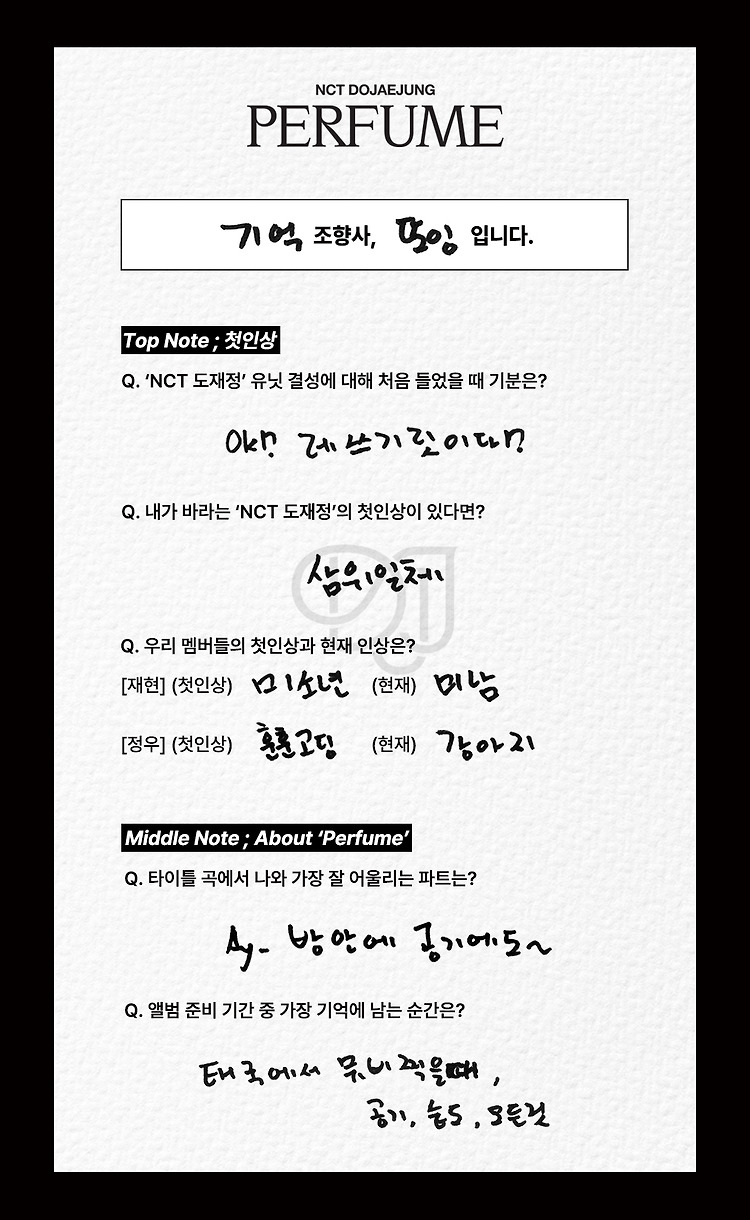 NCT DOJAEJUNG
PERFUME
기억 조향사, 또잉 입니다.
Top Note ; 첫인상
Q. ‘NCT 도재정’ 유닛 결성에 대해 처음 들었을 때 기분은?
Ok!? 레쓰기릿이다!?
Q. 내가 바라는 ‘NCT 도재정’의 첫인상이 있다면?
삼위일체
Q. 우리 멤버들의 첫인상과 현재 인상은?
[재현] (첫인상) 미소년 (현재) 미남
[정우] (첫인상) 훈훈고딩 (현재) 강아지
Middle Note ; About ‘Perfume’
Q. 타이틀 곡에서 나와 가장 잘 어울리는 파트는?
Ay- 방 안에 공기에도~
Q. 앨범 준비 기간 중 가장 기억에 남는 순간은?
태국에서 뮤비 찍을때,
공기, 습도, 모든것